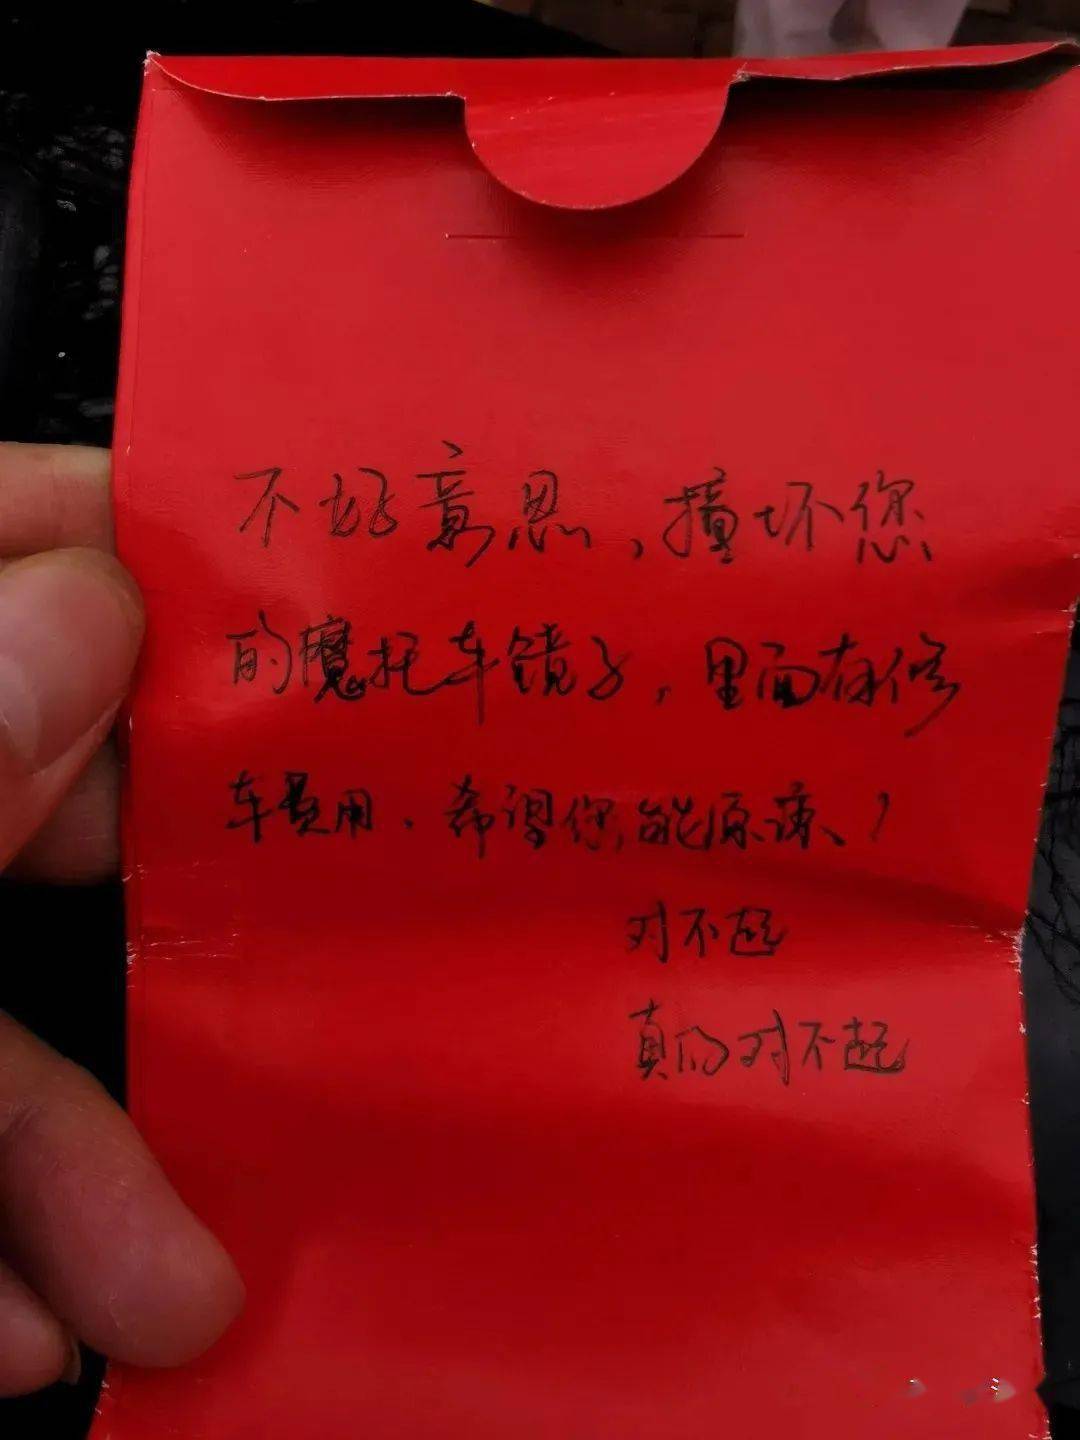 不好意思,撞坏您
的魔托车镜子,里面有修
车费用.希望您能原谅!
对不起
真的对不起